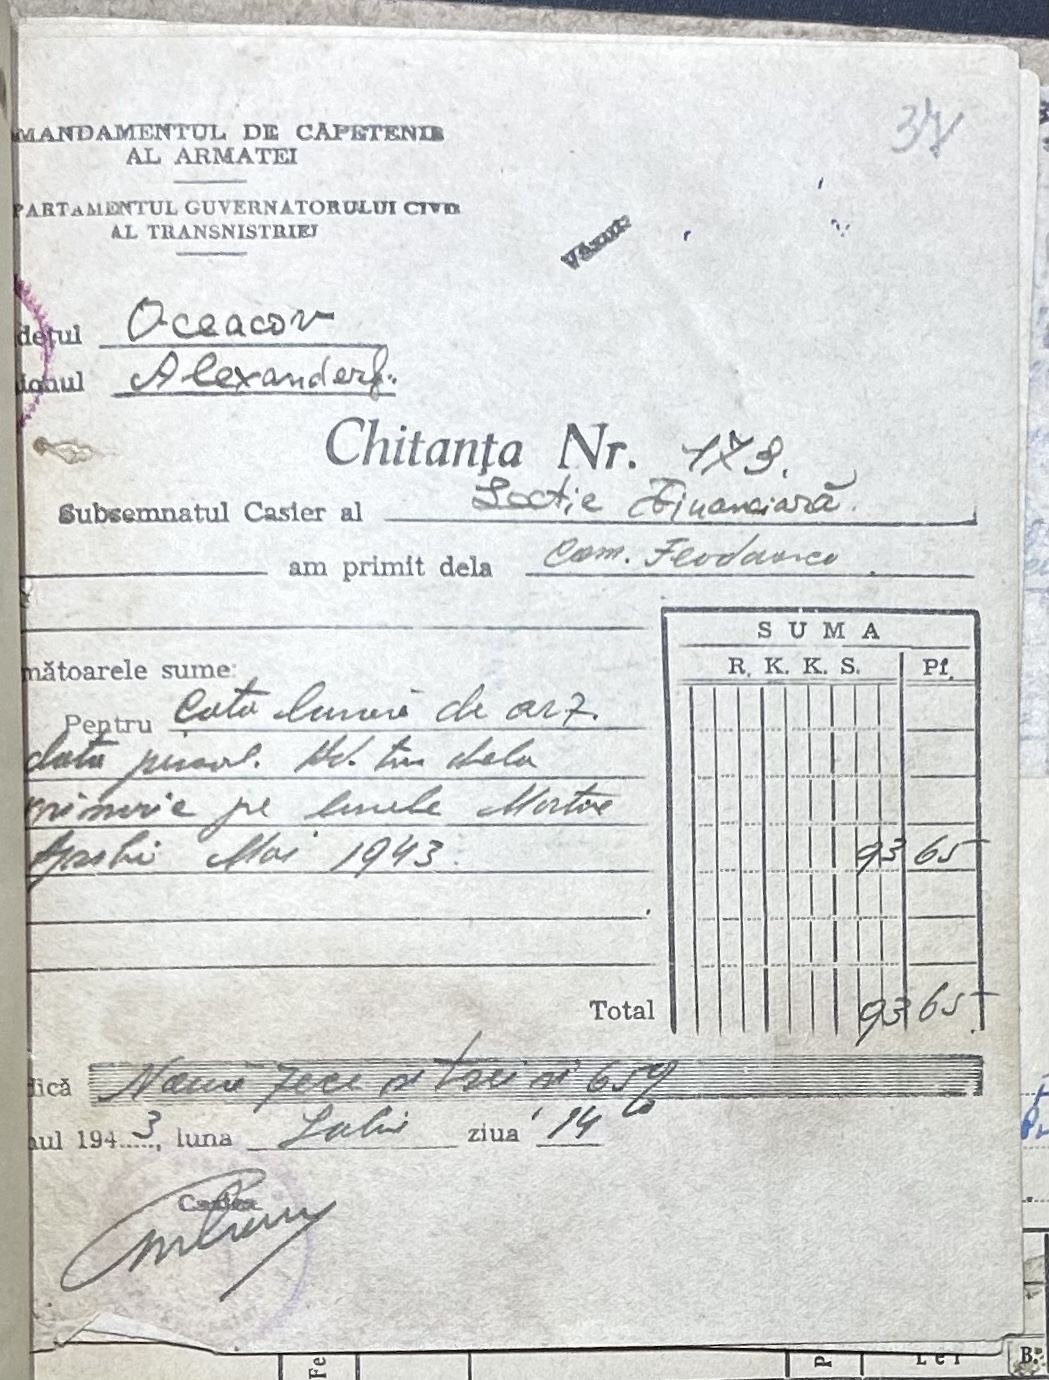 37
MANDAMENTUL DE CĂPETENIE
AL ARMATEI
PARTAMENTUL GUVERNATORULUI CIVIL
AL TRANSNISTRIEI
Văzut
dețul Oceacov
ionul Alexanderf.
Chitanța Nr. 173.
Subsemnatul Casier al Secție Financiară.
am primit dela Com.
SUMA
R. K. K. S. Pf.
mătoarele sume:
Pentru Cota lunii de arz.
data dela
primărie pe lunele Martie
Aprilie Mai 1943. 93 65
Total 93 65
dică Nouă zeci și trei și 65%
nul 1943, luna Iulie ziua 14
Casier
Fe
P
Lei
B.